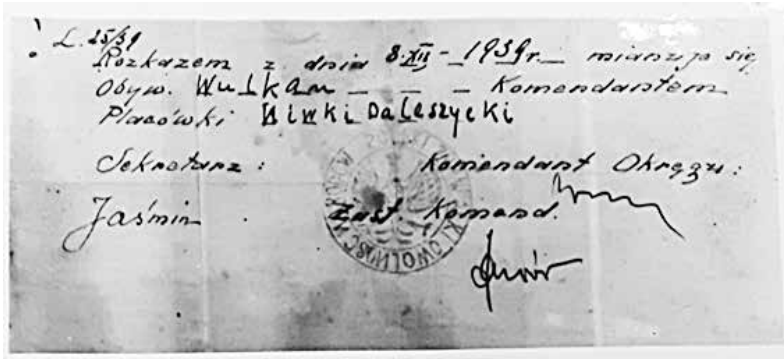 L. 25/39
Rozkazem z dnia 8.XII - 1939r. mianuje się
Obyw. Wulkan - - - Komendantem
Placówki Niwki Daleszycki
Sekretarz : Komendant Okręgu :
Jaśmin Zast. Komend.